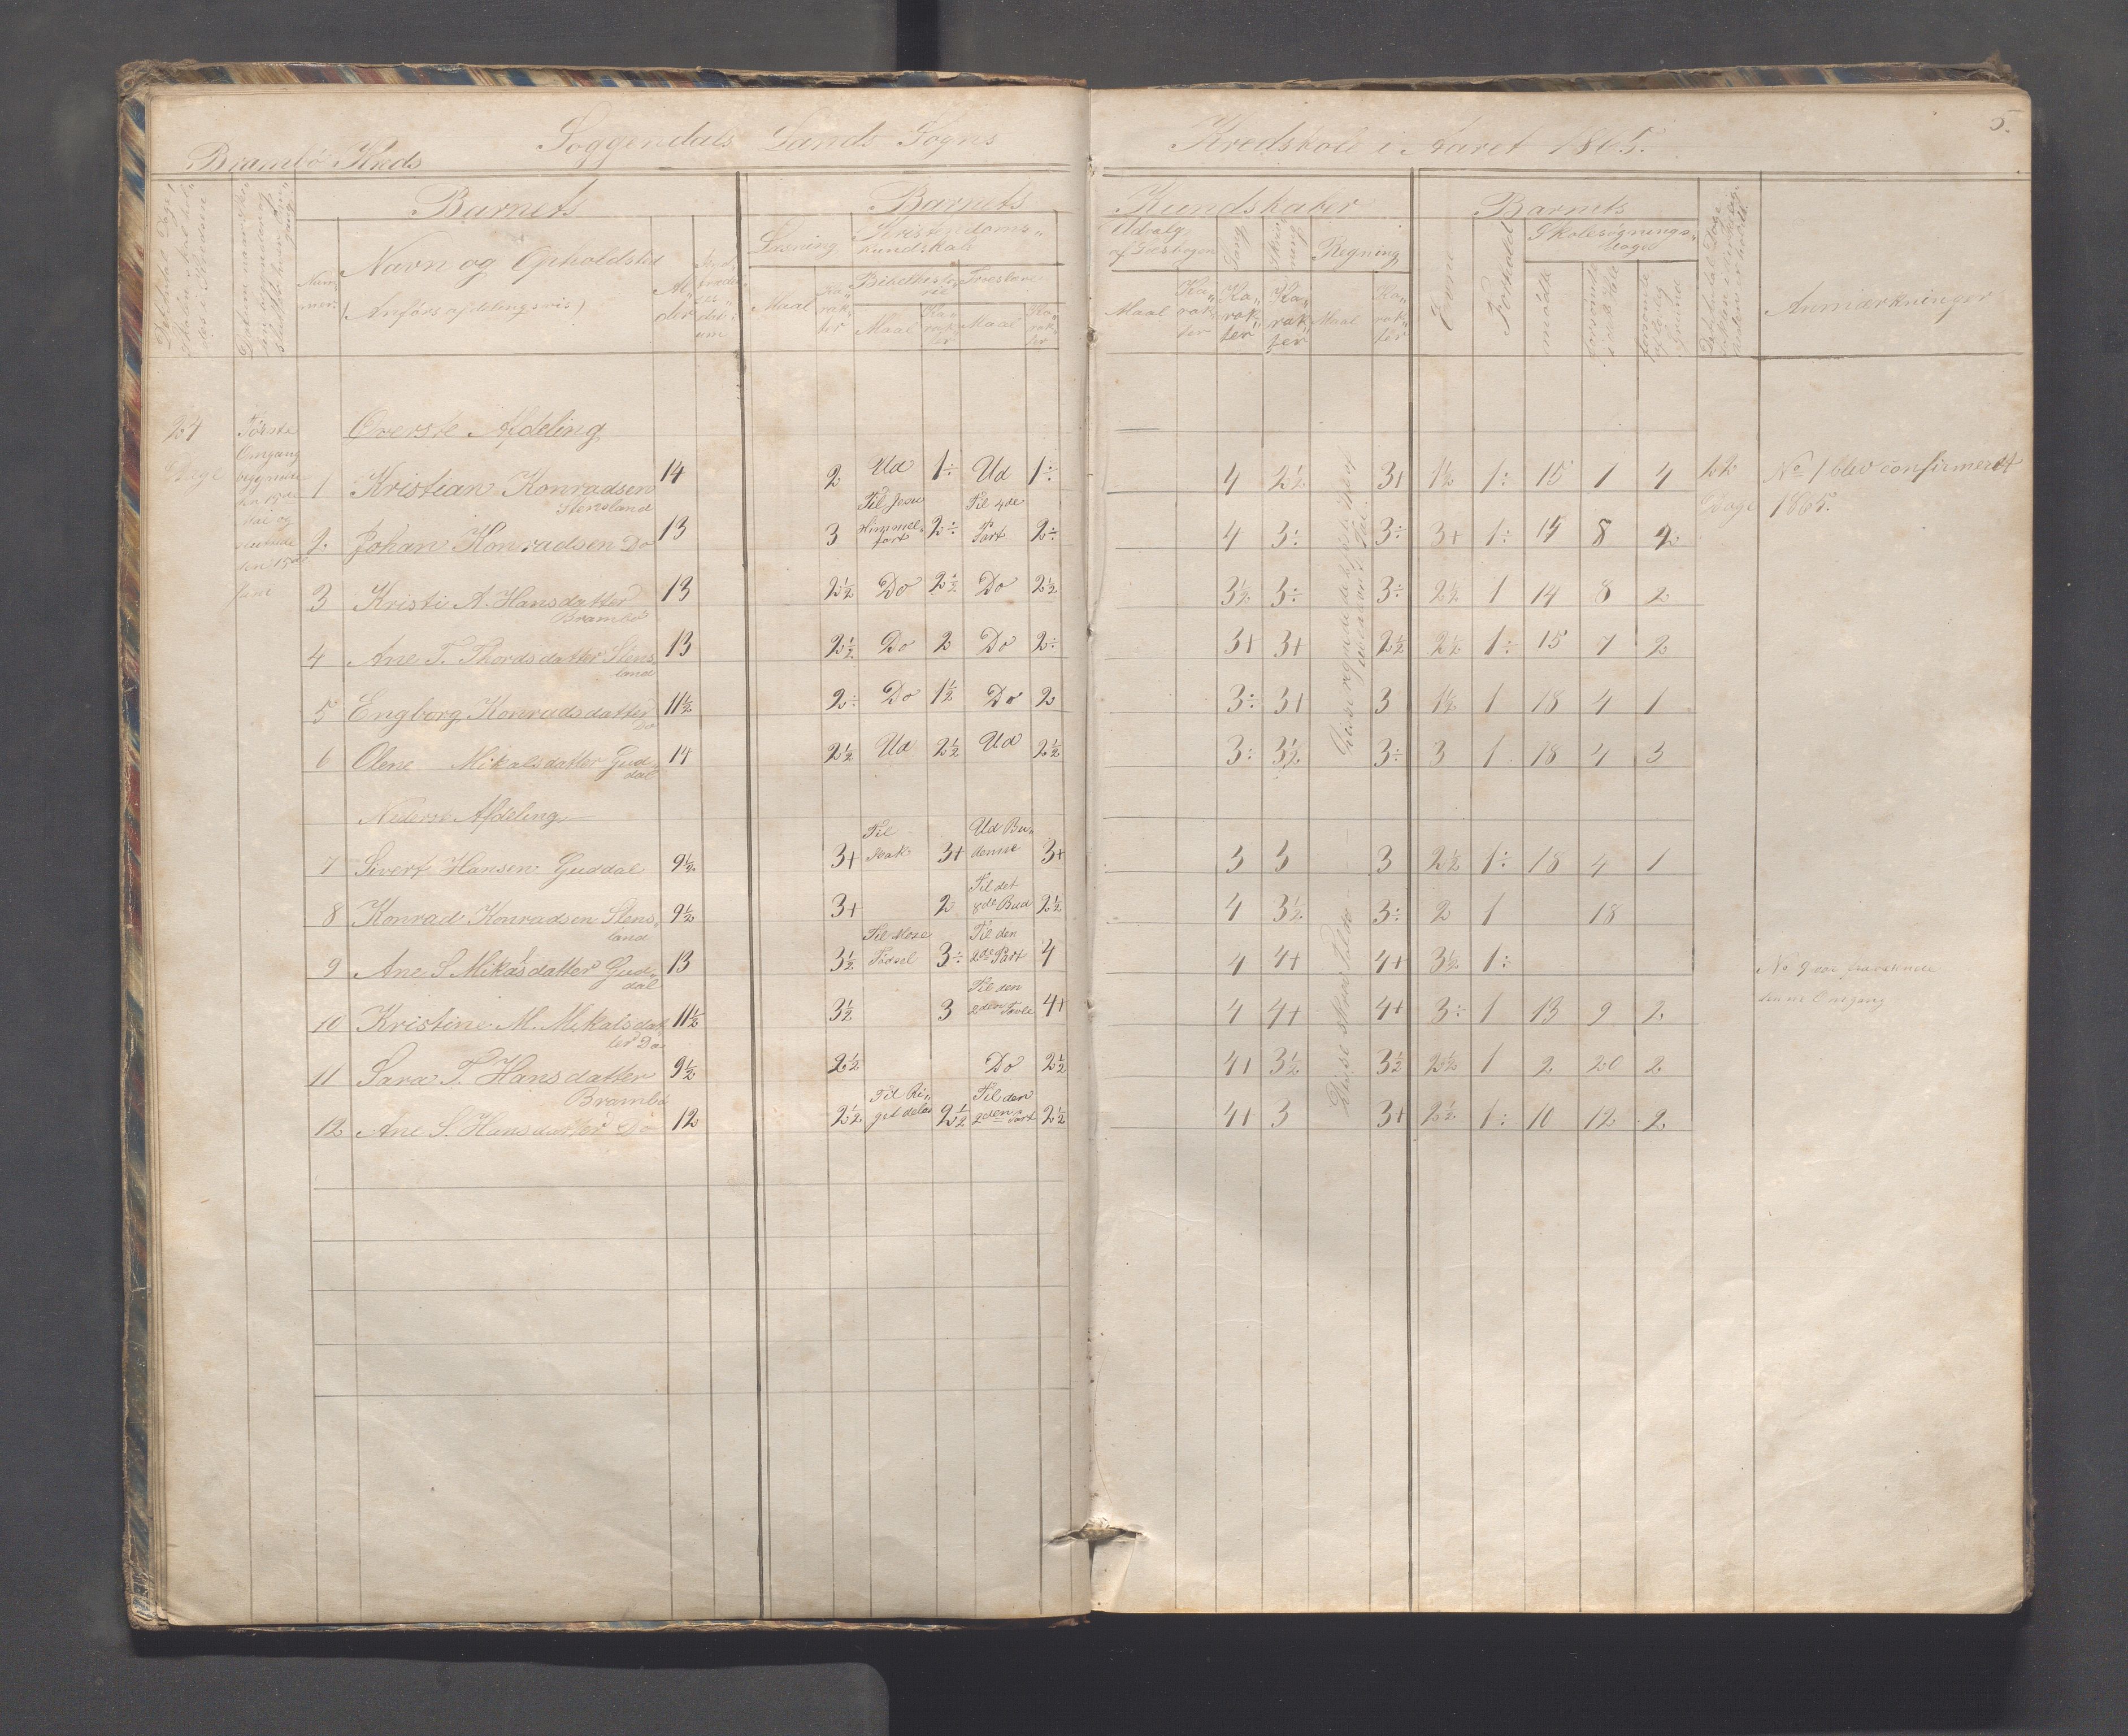 Soggendals Lands Sogns Kredskole i Aaret 1865. 5.
Brambø Kreds
Barnets Barnets Kundskaber Barnets
Nummer. Navn og Opholdsted (Anføres afdelingsvis) Alder
Læsning Kristendomskundskab Udvalg af Læsebogen Sang Skrivning Regning
Maal Karakter Bibelhistorie Troeslære
Maal Karakter Maal Karakter Maal Karakter Karakter Karakter Maal Karakter
Evne Forhold Skolesøgningsdage
mødte forsømte forsømte af lovlig Grund
Anmærkninger
24 Dage
Første Omgang begyndte den 18de Mai og sluttede den 15de Juni
Øverste Afdeling
1 Kristian Konradsen Stensland 14 2 Ud 1÷ Ud 1÷ 4 2½ 3+ 1½ 1÷ 15 1 4 22 Dage No 1 blev confirmeret 1865.
2. Johan Konradsen Do 13 3 Til Jesu Himmelfart 2÷ Til 4de Part 2÷ 4 3÷ 3÷ 3+ 1÷ 14 8 2
3 Kristi A. Hansdatter Brambø 13 2½ Do 2½ Do 2½ 3½ 3÷ 3÷ 2½ 1 14 8 2
4 Ane T. Thordsdatter Stensland 13 2½ Do 2 Do 2÷ 3+ 3+ 2½ 2½ 1÷ 15 7 2
5 Engborg Konradsdatter Do 11½ 2÷ Do 1½ Do 2 3÷ 3+ 3 1½ 1 18 4 1
6 Olene Mikalsdatter Guddal 14 2½ Ud 2½ Ud 2½ 3÷ 3½ 3÷ 3 1 18 4 3
Nederste Afdeling
7 Sivert Hansen Guddal 9½ 3+ Til Isak 3+ Ud Budene 3+ 3 3 3 2½ 1÷ 18 4 1
8 Konrad Konradsen Stensland 9½ 3+ 2 Til det 8de Bud 2½ 4 3½ 3÷ 2 1 18
9 Ane S Mikalsdatter Guddal 13 3½ Til Mose Fødsel 3÷ Til den 2de Part 4 4 4+ 4+ 3½ 1÷ No 9 var fraværende denne Omgang
10 Kristine M. Mikalsdatter Do 11½ 3½ 3 Til den 2den Tavle 4+ 4 4+ 4+ 3÷ 1 13 9 2
11 Sara T. Hansdatter Brambø 9½ 2½ Do 2½ 4+ 3½ 3½ 2½ 1 2 20 2
12 Ane S. Hansdatter Do 12 2½ 2½ Til den 2den Part 2½ 4+ 3 3+ 2½ 1÷ 10 12 2